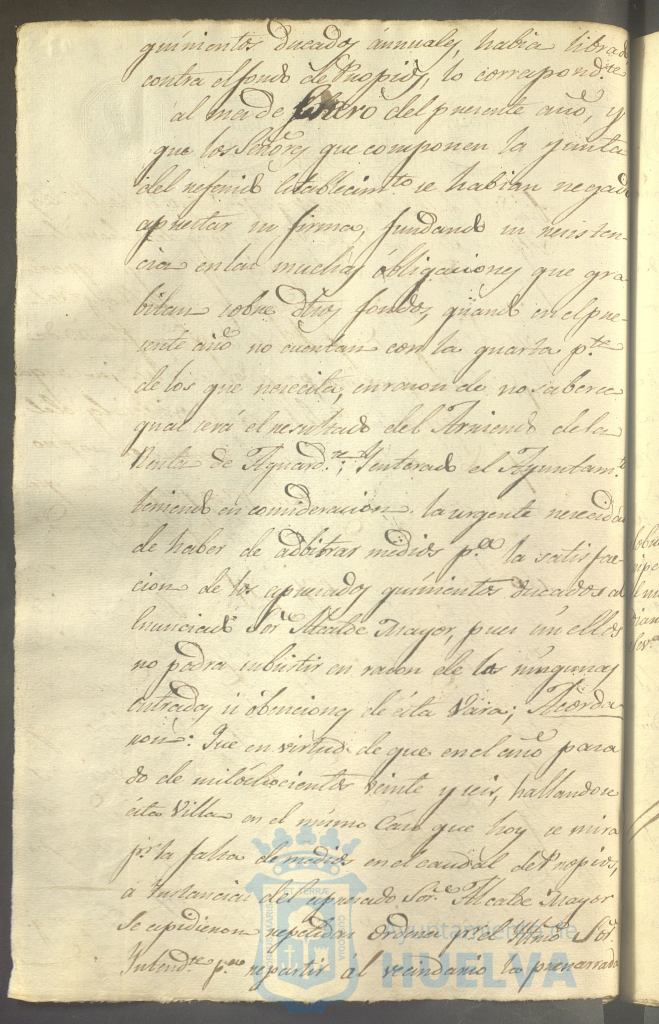 quinientos ducados ánnuales, habia librado
contra el fondo de Propios, lo correspond.te
al mes de Enero del presente año, y
que los Señores que componen la Junta
del referido Establecim.to se habian negado
aprestar su firma, fundando su resisten-
cia en las muchas óbligaciones que gra-
bitan sobre dhos fondos, quando en el pre-
sente año no cuentan con la quarta p.te
de los que necesita, en razon de no saberse
qual será el resultado del Arriendo de la
Renta de Aguard.te; Y enterado el Ayuntam.to
teniendo en consideracion la urgente necesidad
de haber de adbitrar medios p.a la satisfac-
cion de los expresados quinientos ducados al
Enunciado Sor. Alcalde Mayor, pues sin ellos
no podra subsistir en razon de las ningunas
entradas ú óbenciones de ésta Vara; Acorda-
ron: Que en virtud de que en el año pasa-
do de mil óchocientos veinte y seis, hallandose
ésta Villa en el mismo Caso que hoy se mira
p.r la falta de medios en el caudal de Propios,
a Instancias del expresado Sor. Alcalde Mayor
se expidieron repetidas ordenes p.r el Sor.
Intend.te p.a repartir ál vecindario la prenarrada
Ayuntamiento de
HUELVA